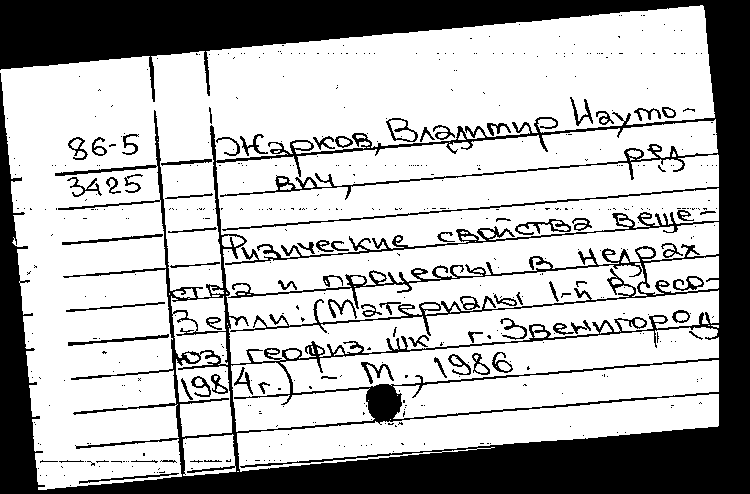 86-5
3425
Жарков, Владимир Наумо-
вич, ред
Физические свойства веще-
ства и процессы в недрах
Земли: (Материалы 1-й Всесо-
юз. геофиз. шк. г. Звенигород
1984г.). - М., 1986.